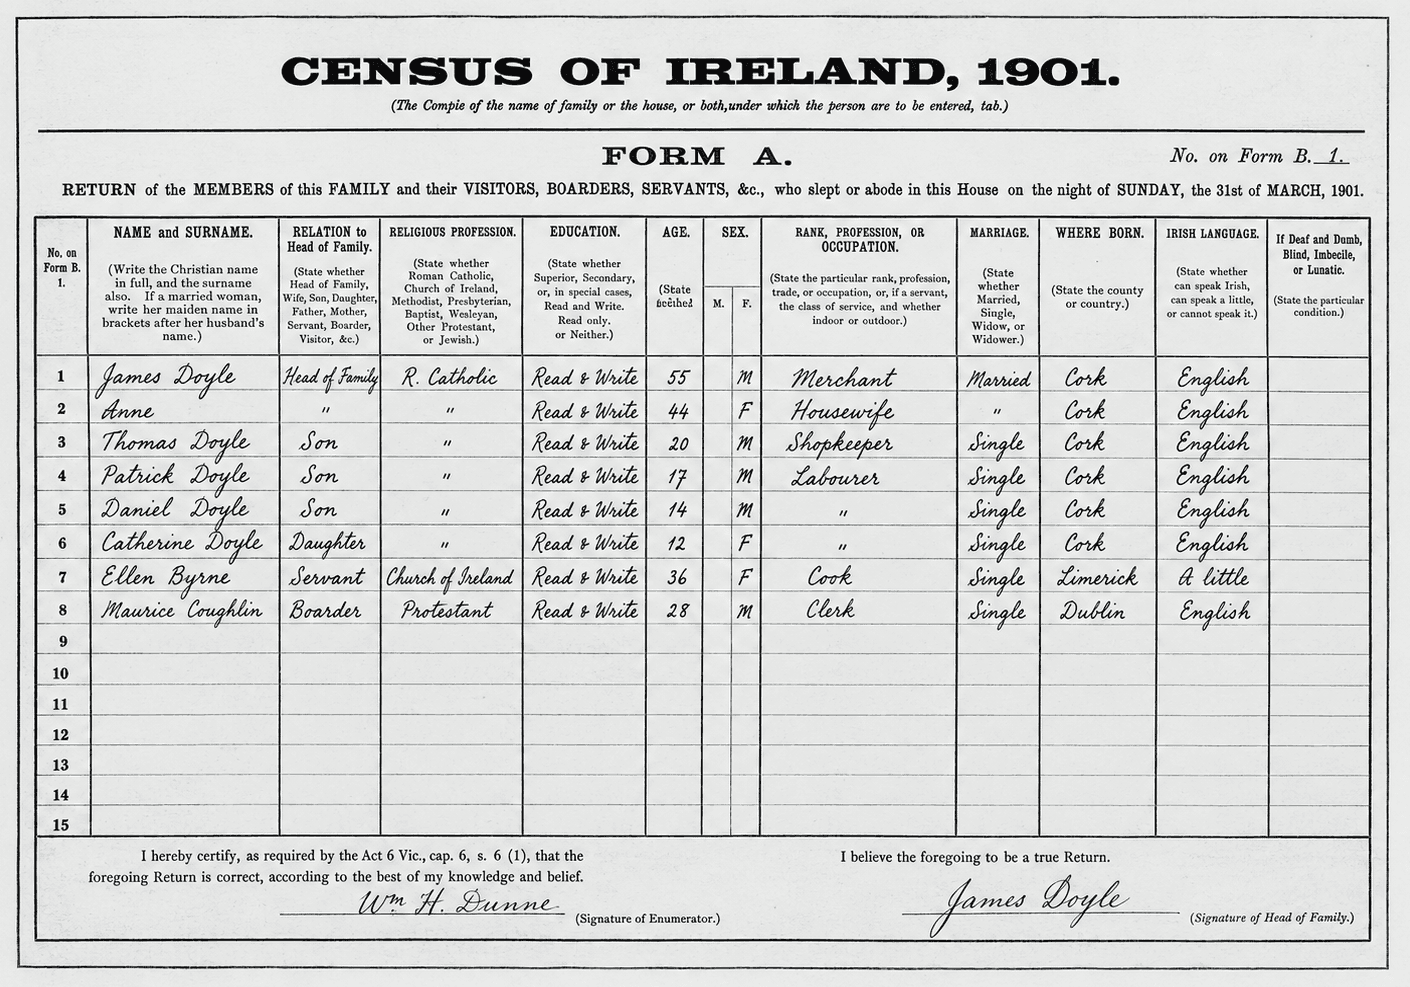 CENSUS OF IRELAND, 1901.
(The Compie of the name of family or the house, or both,under which the person are to be entered, tab.)
FORM A.
No. on Form B. 1.
RETURN of the MEMBERS of this FAMILY and their VISITORS, BOARDERS, SERVANTS, &c., who slept or abode in this House on the night of SUNDAY, the 31st of MARCH, 1901.
No. on
Form B.
1.
NAME and SURNAME.
(Write the Christian name
in full, and the surname
also. If a married woman,
write her maiden name in
brackets after her husband's
name.)
RELATION to
Head of Family.
(State whether
Head of Family,
Wife, Son, Daughter,
Father, Mother,
Servant, Boarder,
Visitor, &c.)
RELIGIOUS PROFESSION.
(State whether
Roman Catholic,
Church of Ireland,
Methodist, Presbyterian,
Baptist, Wesleyan,
Other Protestant,
or Jewish.)
EDUCATION.
(State whether
Superior, Secondary,
or, in special cases,
Read and Write.
Read only.
or Neither.)
AGE.
(State
SEX.
M. F.
RANK, PROFESSION, OR
OCCUPATION.
(State the particular rank, profession,
trade, or occupation, or, if a servant,
the class of service, and whether
indoor or outdoor.)
MARRIAGE.
(State
whether
Married,
Single,
Widow, or
Widower.)
WHERE BORN.
(State the county
or country.)
IRISH LANGUAGE.
(State whether
can speak Irish,
can speak a little,
or cannot speak it.)
If Deaf and Dumb,
Blind, Imbecile,
or Lunatic.
(State the particular
condition.)
1 James Doyle Head of Family R. Catholic Read & Write 55 M Merchant Married Cork English
2 Anne " " Read & Write 44 F Housewife " Cork English
3 Thomas Doyle Son " Read & Write 20 M Shopkeeper Single Cork English
4 Patrick Doyle Son " Read & Write 17 M Labourer Single Cork English
5 Daniel Doyle Son " Read & Write 14 M " Single Cork English
6 Catherine Doyle Daughter " Read & Write 12 F " Single Cork English
7 Ellen Byrne Servant Church of Ireland Read & Write 36 F Cook Single Limerick A little
8 Maurice Coughlin Boarder Protestant Read & Write 28 M Clerk Single Dublin English
9
10
11
12
13
14
15
I hereby certify, as required by the Act 6 Vic., cap. 6, s. 6 (1), that the
foregoing Return is correct, according to the best of my knowledge and belief.
Wm H. Dunne
(Signature of Enumerator.)
I believe the foregoing to be a true Return.
James Doyle
(Signature of Head of Family.)